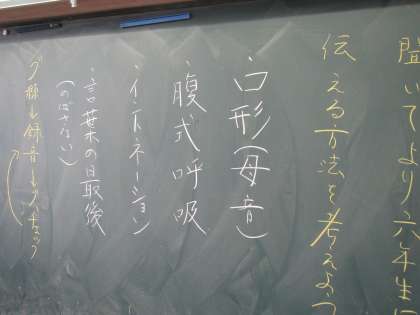 聞いてより六年生に
伝える方法を考えよう
・口形(母音)
・腹式呼吸
・イントネーション
・言葉の最後
(のばさない)
録音
チェック